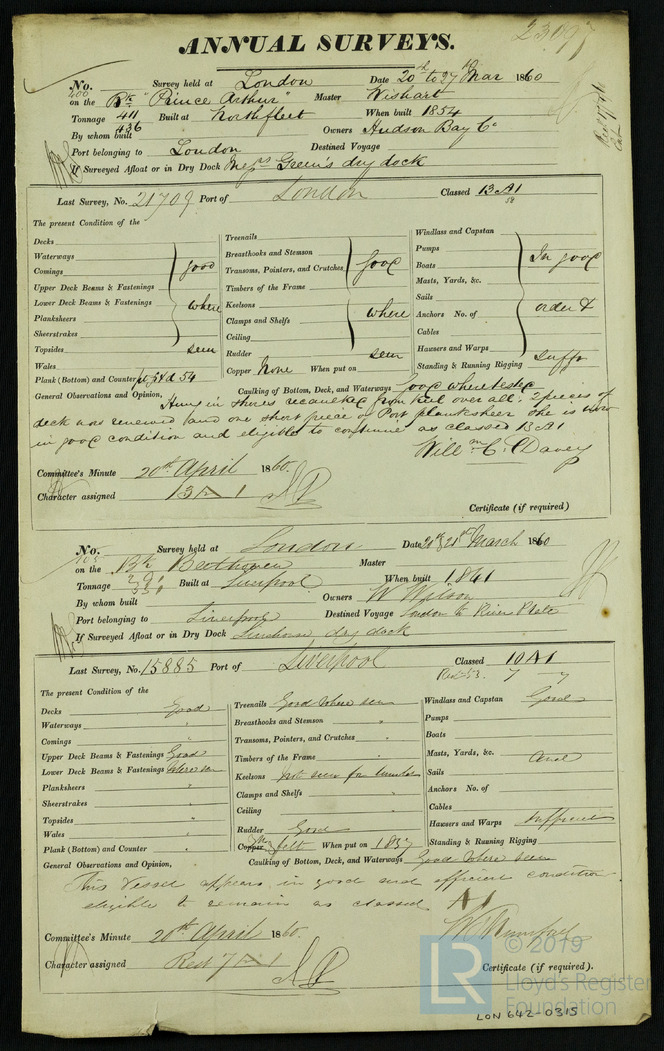 23097
ANNUAL SURVEYS.
No. Survey held at London Date 20th to 27th Mar 1860
on the Bk "Prince Arthur" Master Wishart
Tonnage 411 Built at Northfleet When built 1854
436
By whom built Owners Hudson Bay Co
Port belonging to London Destined Voyage
If Surveyed Afloat or in Dry Dock Messrs Green's dry dock
Last Survey, No. 21709 Port of London Classed 13 A1
58
The present Condition of the
Decks
Waterways
Comings
Upper Deck Beams & Fastenings
Lower Deck Beams & Fastenings
Planksheers
Sheerstrakes
Topsides
Wales
Plank (Bottom) and Counter
good
where
seen
Treenails
Breasthooks and Stemson
Transoms, Pointers, and Crutches
Timbers of the Frame
Keelsons
Clamps and Shelfs
Ceiling
Rudder
good
where
seen
Copper None When put on
Windlass and Capstan
Pumps
Boats
Masts, Yards, &c.
Sails
Anchors No. of
Cables
Hawsers and Warps
Standing & Running Rigging
In good
order &
sufft
Caulking of Bottom, Deck, and Waterways good where tested
General Observations and Opinion, Hung in shores recaulked from keel over all. 2 pieces of
deck was renewed and one short piece of Port planksheer She is now
in good condition and eligible to continue as classed 13 A1
Willm C. Davey
Committee's Minute 20th April 1860
Character assigned 13 A 1
Certificate (if required)
No. Survey held at London Date 21st March 1860
on the Bk Beethoven Master
Tonnage Built at Liverpool When built 1841
By whom built Owners W Wilson
Port belonging to Liverpool Destined Voyage London to River Plate
If Surveyed Afloat or in Dry Dock Limehouse dry dock
Last Survey, No. 15885 Port of Liverpool Classed 10 A1
7 7
The present Condition of the
Decks Good
Waterways "
Comings "
Upper Deck Beams & Fastenings Good
Lower Deck Beams & Fastenings where seen
Planksheers "
Sheerstrakes "
Topsides "
Wales "
Plank (Bottom) and Counter "
Treenails Good where seen
Breasthooks and Stemson "
Transoms, Pointers, and Crutches "
Timbers of the Frame "
Keelsons Not seen for
Clamps and Shelfs "
Ceiling "
Rudder Good
Copper felt When put on 1857
Windlass and Capstan Good
Pumps
Boats
Masts, Yards, &c. and
Sails
Anchors No. of
Cables
Hawsers and Warps Sufficient
Standing & Running Rigging
Caulking of Bottom, Deck, and Waterways Good where seen
General Observations and Opinion,
This Vessel appears in good and efficient condition
eligible to remain as classed A1
Committee's Minute 20th April 1860.
Character assigned Rest 7 A 1
Certificate (if required).
LR © 2019
Lloyd's Register
Foundation
LON 642-0315